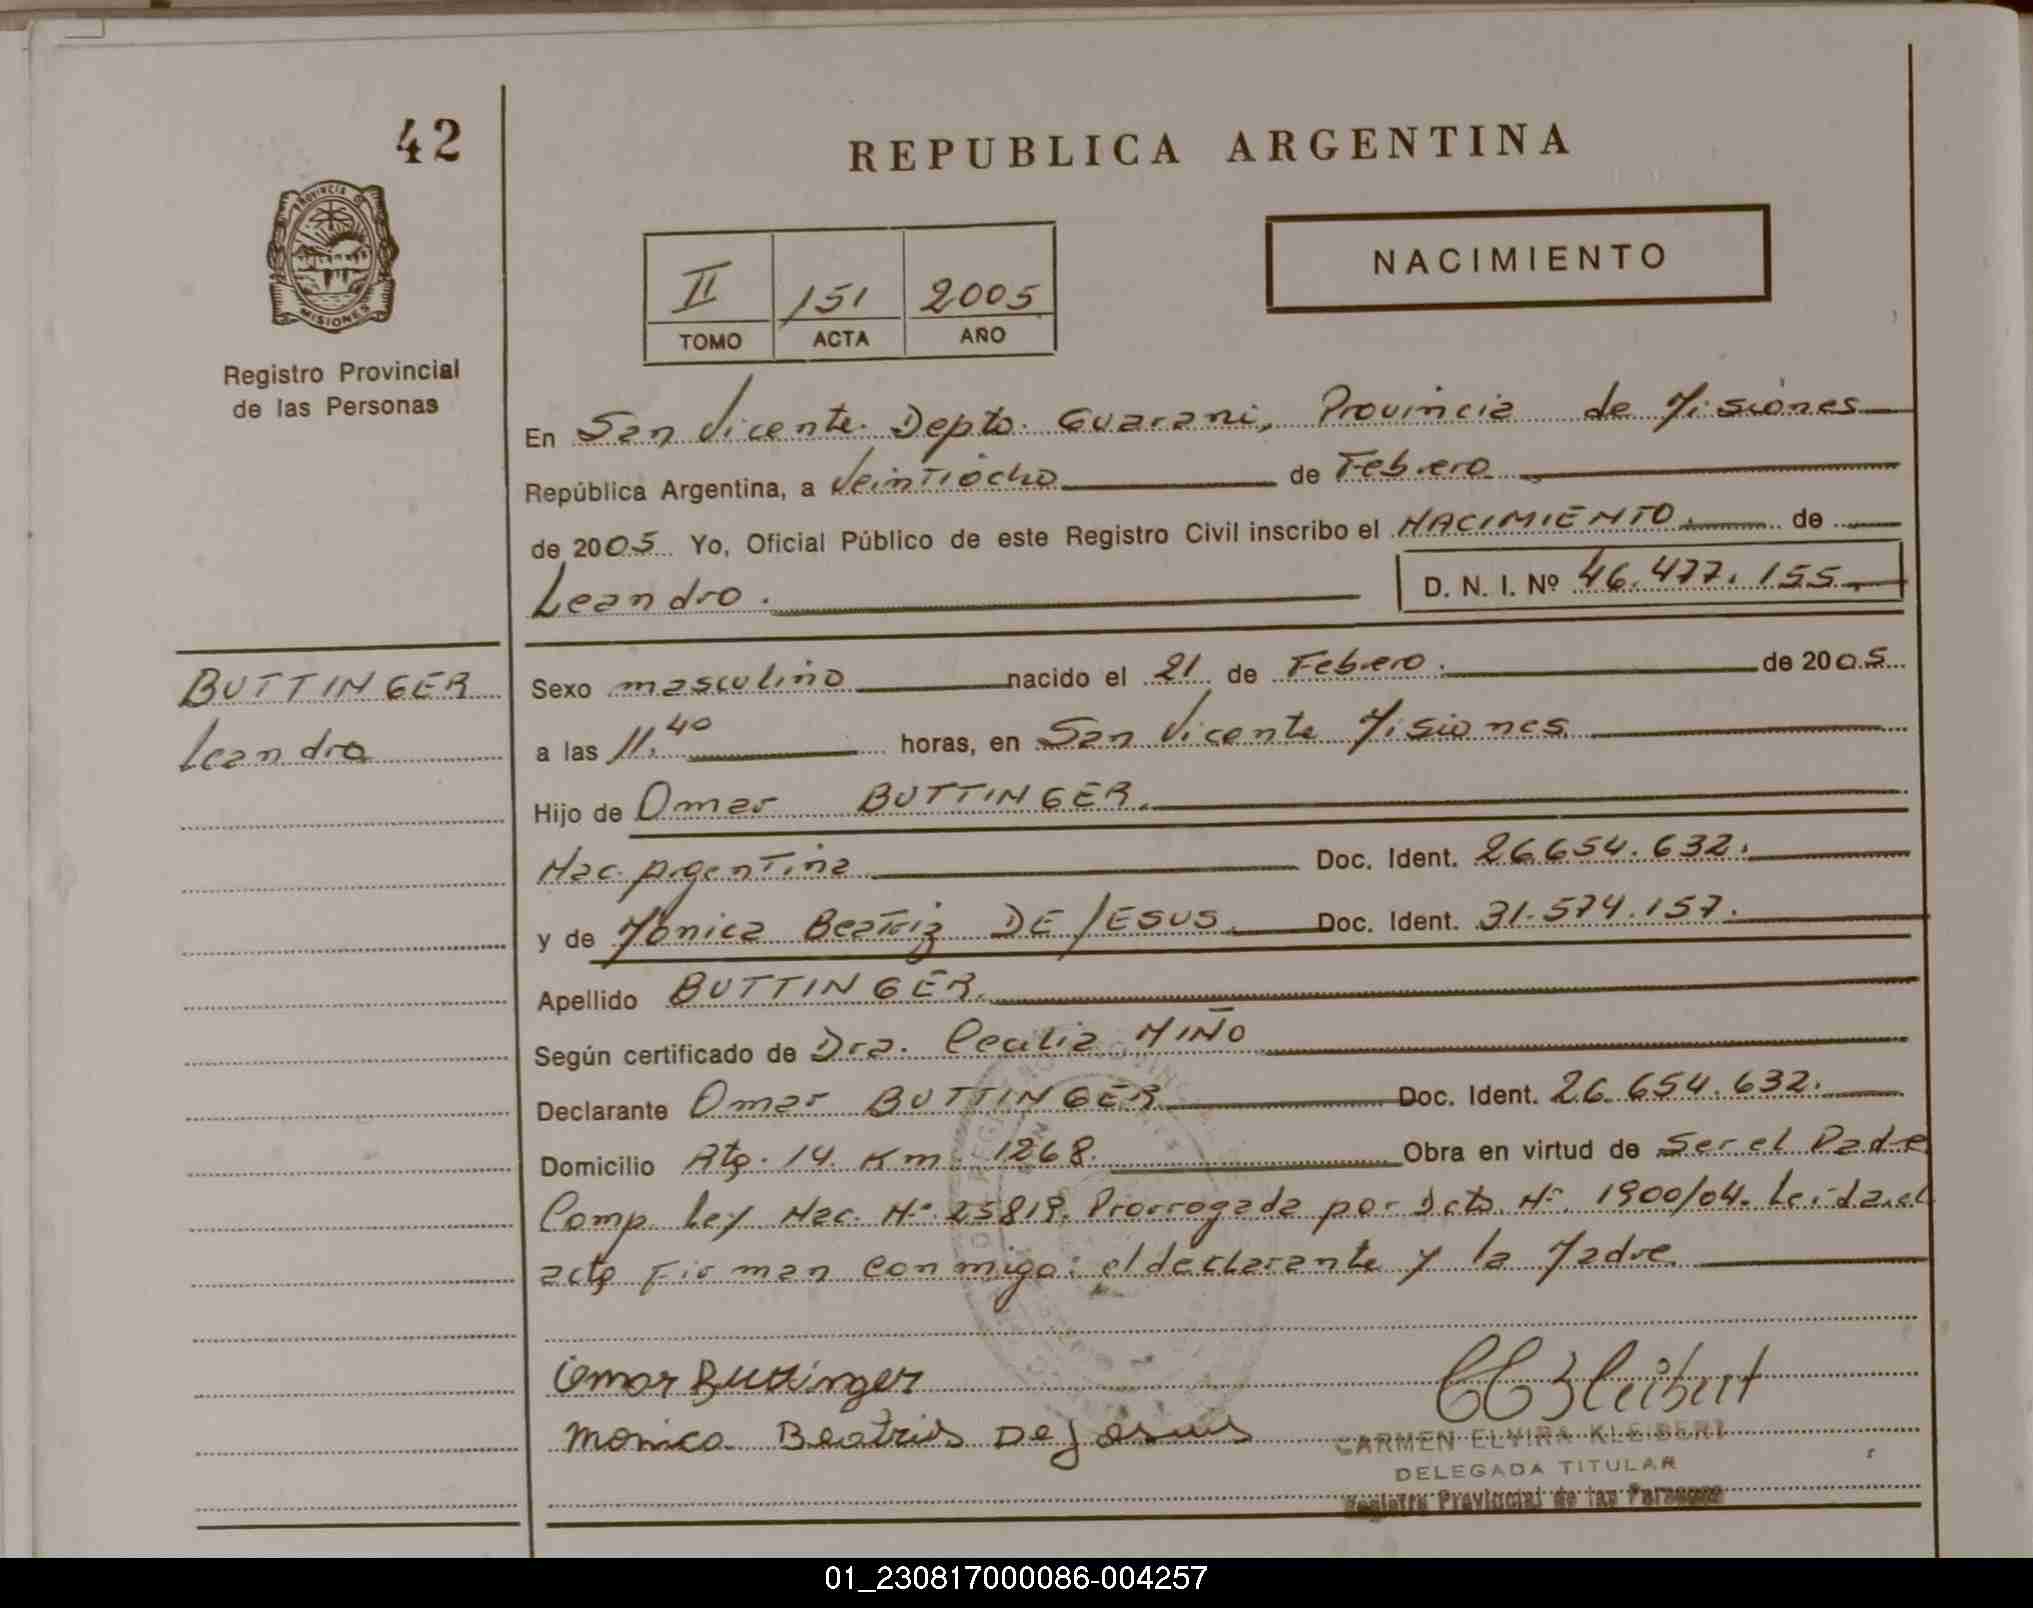 42
REPUBLICA ARGENTINA
PROVINCIA DE
MISIONES
Registro Provincial
de las Personas
II 151 2005
TOMO ACTA AÑO
NACIMIENTO
En San Vicente. Depto. Guarani, Provincia de Misiones
República Argentina, a Veintiocho de Febrero
de 2005 Yo, Oficial Público de este Registro Civil inscribo el NACIMIENTO. de
Leandro. D. N. I. Nº 46.477.155.
BUTTINGER
Leandro
Sexo masculino nacido el 21 de Febrero. de 2005
a las 11.40 horas, en San Vicente Misiones
Hijo de Omar BUTTINGER.
Nac. Argentina Doc. Ident. 26.654.632.
y de Mónica Beatriz DE JESUS. Doc. Ident. 31.574.157.
Apellido BUTTINGER.
Según certificado de Dra. Cecilia MIÑO
Declarante Omar BUTTINGER Doc. Ident. 26.654.632.
Domicilio Rta. 14 Km 1268. Obra en virtud de Ser el Padre
Comp. Ley Nac. Nº 25819. Prorrogada por Dcto. Nº 1900/04. Leida el
acta Firman conmigo: el declarante y la Madre.
Omar Buttinger
Monica Beatris De Jesus
CARMEN ELVIRA KLEIBERT
DELEGADA TITULAR
Registro Provincial de las Personas
01_230817000086-004257